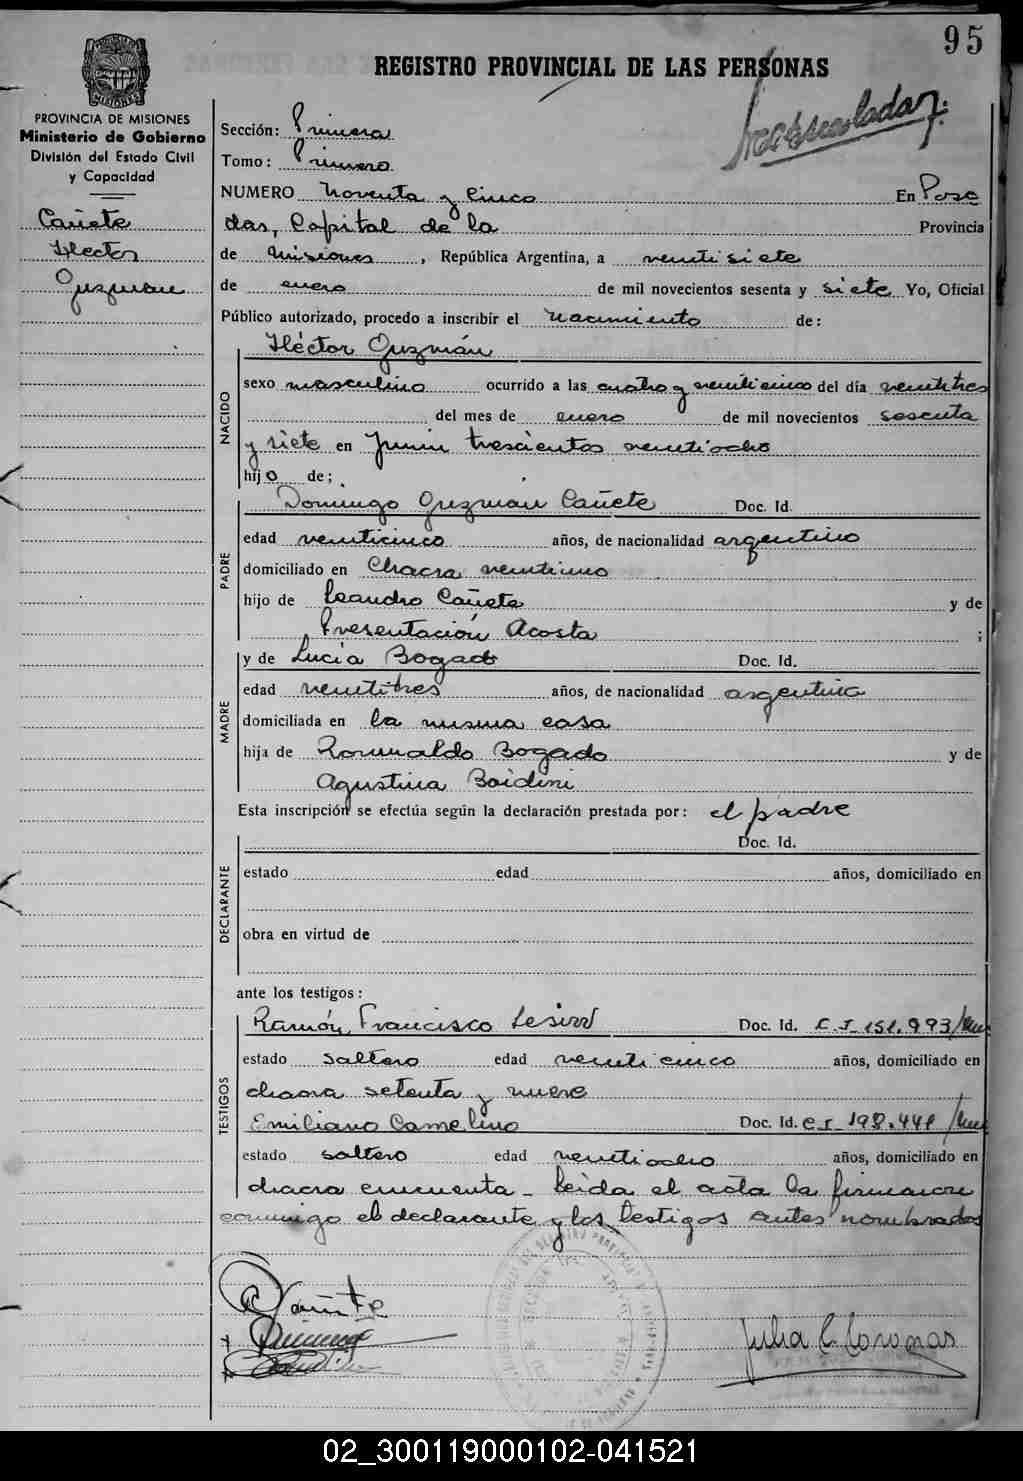 95
REGISTRO PROVINCIAL DE LAS PERSONAS
PROVINCIA DE MISIONES
Ministerio de Gobierno
División del Estado Civil
y Capacidad
Cañete
Hector
Guzman
Sección: Primera
Tomo: Primero
NUMERO Noventa y Cinco En Posa
das, Capital de la Provincia
de Misiones, República Argentina, a ventisiete
de enero de mil novecientos sesenta y siete Yo, Oficial
Público autorizado, procedo a inscribir el nacimiento de:
NACIDO
Héctor Guzmán
sexo masculino ocurrido a las cuatro y venticinco del día ventitres
del mes de enero de mil novecientos sesenta
y siete en Junin trescientos ventiocho
hijo de;
PADRE
Domingo Guzmán Cañete Doc. Id.
edad venticinco años, de nacionalidad argentino
domiciliado en Chacra ventiuno
hijo de Leandro Cañete y de
Presentación Acosta ;
MADRE
y de Lucia Bogado Doc. Id.
edad ventitres años, de nacionalidad argentina
domiciliada en la misma casa
hija de Romualdo Bogado y de
Agustina Boidini
Esta inscripción se efectúa según la declaración prestada por: el padre
DECLARANTE
Doc. Id.
estado edad años, domiciliado en
obra en virtud de
ante los testigos:
TESTIGOS
Ramón Francisco Doc. Id. C.I. 151.993/
estado soltero edad venticinco años, domiciliado en
chacra setenta y nueve
Emiliano Camelino Doc. Id. C.I. 198.441/
estado soltero edad ventiocho años, domiciliado en
chacra cincuenta - Leida el acta la firmaron
conmigo el declarante y los testigos antes nombrados
Cañete
Julia C. Coronas
02_300119000102-041521